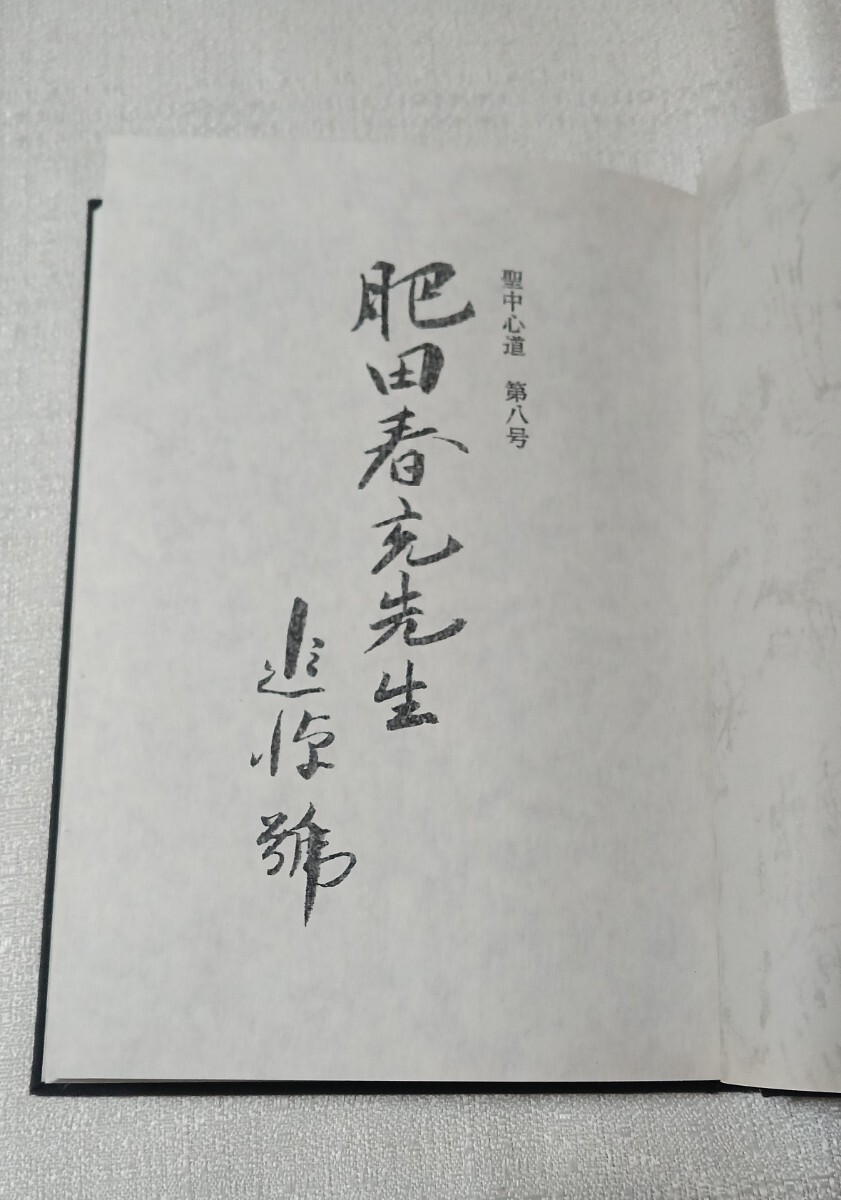 聖中心道　第八号
肥田春充先生
追悼號